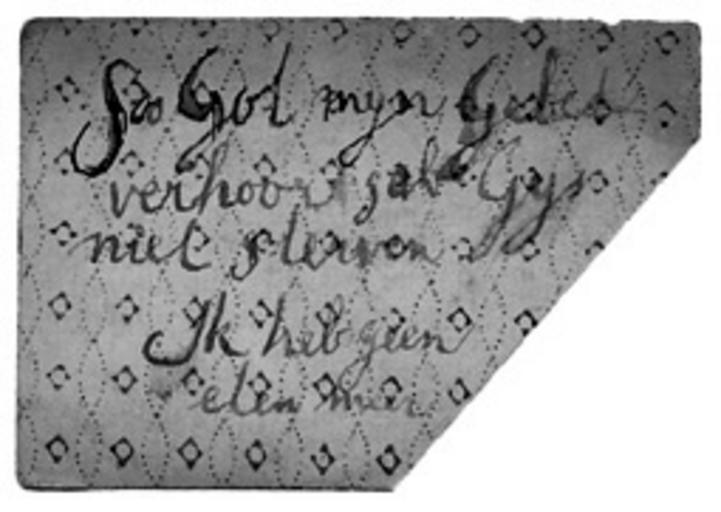 So God myn Gebed
verhoort sal Gys
niet sterven
Ik heb geen
eten meer